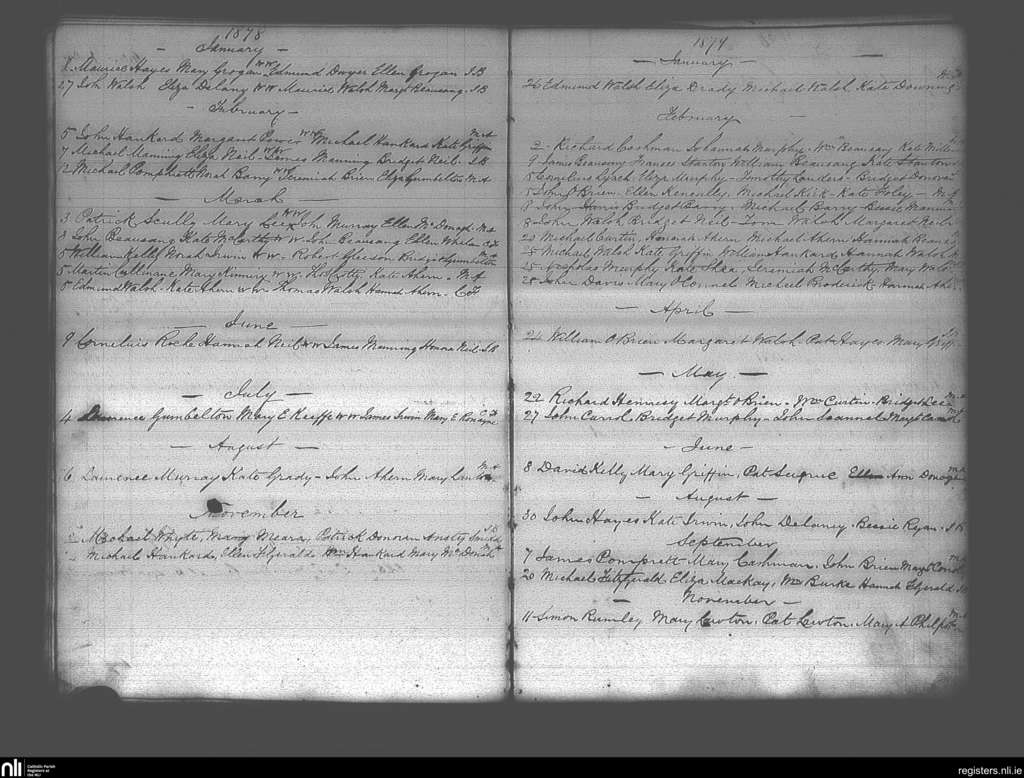 1878
- January -
Maurice Hayes Mary Grogan WW Edmund Dwyer Ellen Grogan J.B
27 Joh Walsh Eliza Delany WW Maurice Walsh Margt Beausang J.B
- February -
5 John Hankard Margaret Power WW Michael Hankard Kate Griffin
7 Michael Manning Eliza Neil WW James Manning Bridget Neil J.B
12 Michael Pomphrett Norah Barry W Jeremiah Brien Eliza Gumbelton M.A
- March -
3 Patrick Scully Mary WW Murray Ellen McDonagh
3 John Beausang Kate McCarthy WW John Beausang Ellen Whelan
5 William Kelly Norah Irwin WW Robert Gleeson Bridget Gumbelton
5 Martin Cullinane Mary WW Kate Ahern -
5 Edmund Walsh Kate Ahern WW Thomas Walsh Hannah Ahern - C.F
- June -
9 Cornelius Roche Hannah Neil WW James Manning Honora Neil J.B
- July -
4 Lawrence Gumbelton Mary E Keiffe WW James Irwin Mary E Ronayne
- August -
6 Laurence Murray Kate Grady - John Ahern Mary Lawton
November
Michael Whyte, Mary Meara, Patrick Donovan Smidd
Michael Hankard, Ellen Fitzgerald Wm Hankard Mary McDonah
1879
- January -
26 Edmund Walsh Eliza Brady Michael Walsh Kate Downing
February
2 - Richard Cashman Johannah Murphy - Wm Beausang Kate
9 James Beausang Frances Stanton William Beausang Kate Stanton
Cornelius Lynch Murphy - Timothy Bridget Donovan
John O'Brien - Ellen Keneally, Michael Kirk - Kate Foley -
8 John Bridget Barry - Michael Barry Bessie
8 John Walsh Bridget Neil - Tom Walsh Margaret Neil
20 Michael Curtin, Hannah Ahern Michael Ahern Hannah
25 Michael Walsh Kate Griffin William Hankard Hannah Walsh
25 Nicholas Murphy Kate Shea, Jeremiah McCarthy, Mary
25 John Davis - Mary O'Connel Michael Broderick Hannah
- April -
24 William O'Brien Margaret Walsh - Pat Hayes Mary
- May -
22 Richard Hennesy Margt O'Brien - Wm Curtin - Bridget Lee
27 John Carrol Bridget Murphy - John Scannel Margt Carrol
- June -
8 David Kelly Mary Griffin, Pat Sugrue Ann Donoghue
- August -
30 John Hayes Kate Irwin, John Delaney - Bessie Ryan - J.B
September
7 James Pomprett Mary Cashman, John Brien Mary
20 Michael Fitzgerald Eliza Mackay, Wm Burke Hannah Fitzgerald
- November -
11 Simon Rumley Mary Lawton, Pat Lawton, Mary A Philpott
nli
Catholic Parish
Registers at
the NLI
registers.nli.ie